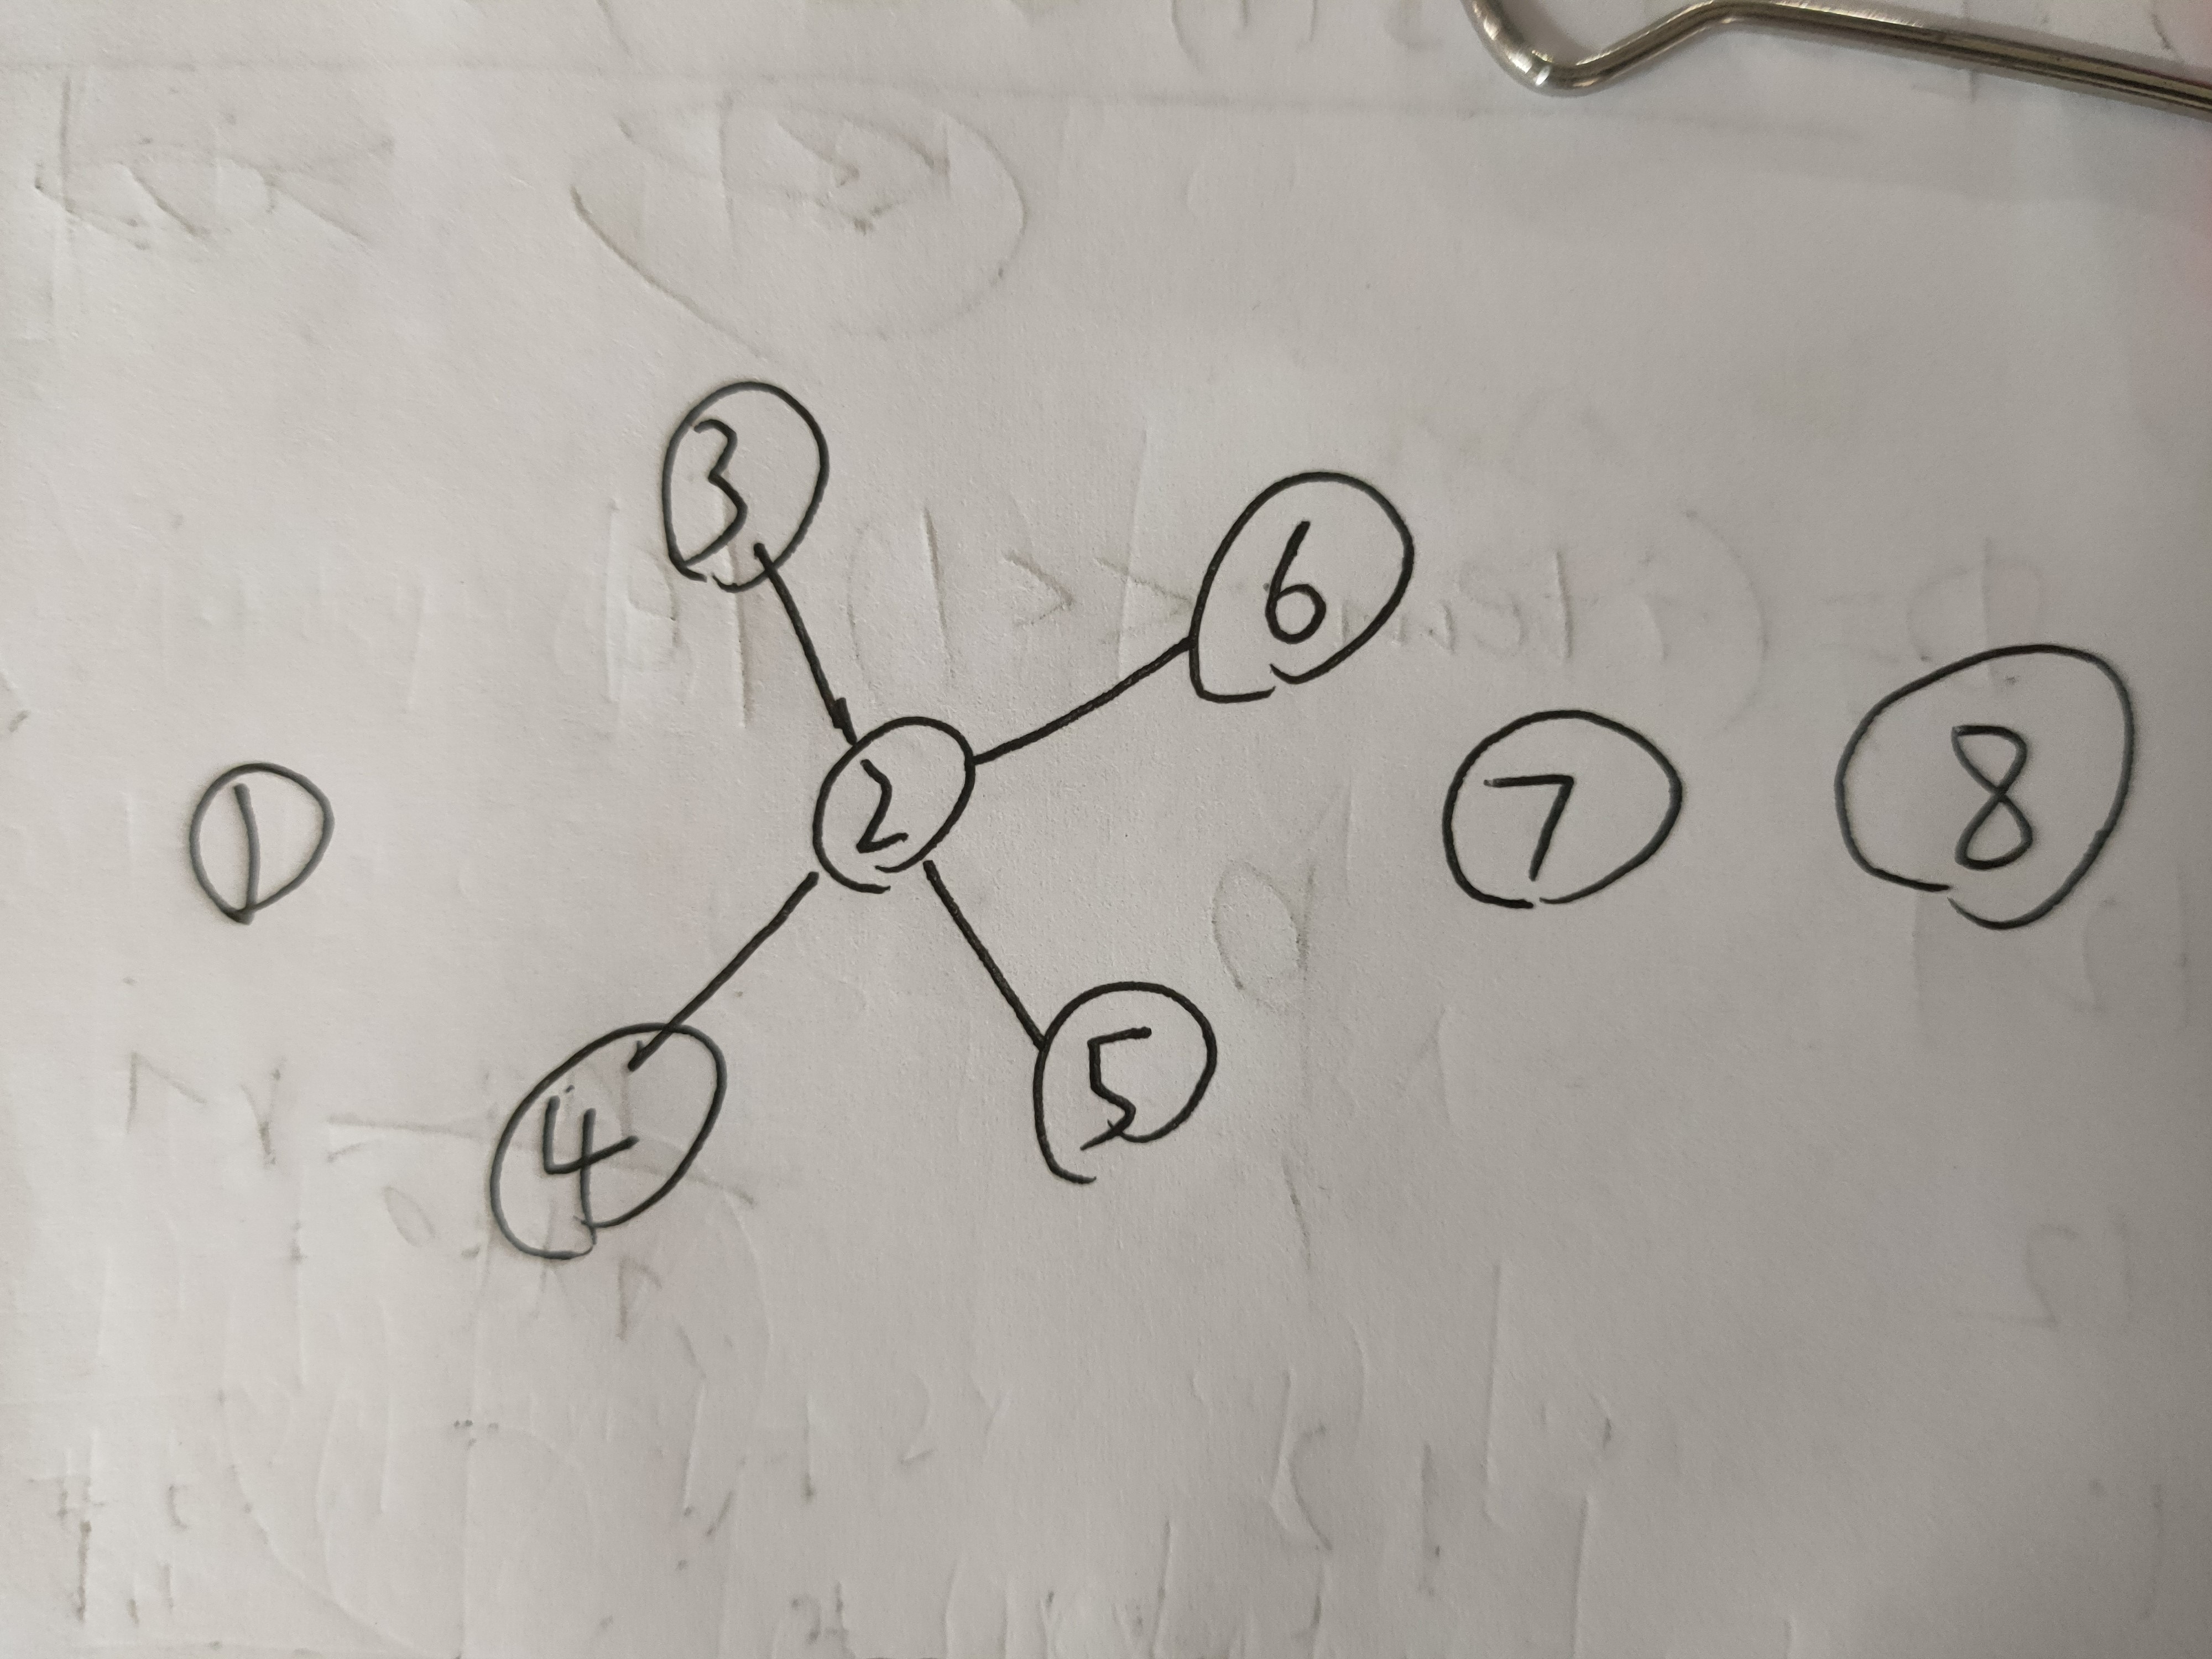 3
6
1
2
7
8
4
5